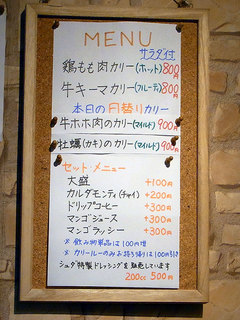 MENU
サラダ付
鶏もも肉カリー(ホット)800円
牛キーマカリー(フルーティ)800円
本日の日替りカリー
牛ホホ肉のカリー(マイルド)900円
牡蠣(カキ)のカリー(マイルド)900円
セット・メニュー
大盛 +100円
カルダモンティ(チャイ) +200円
ドリップコーヒー +300円
マンゴジュース +300円
マンゴラッシー +300円
※飲み物単品は100円増
※カリールーのみお持ち帰りは100円引き
特製ドレッシングを販売しています
200cc 500円